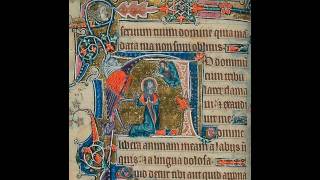 seruum tuum domine quia ma
data tua non sum oblitus
D dominum
cum tribu
larer clama
ui et exaudi
uit me
Libera animam meam a labijs
quis et a lingua dolosa
Quid detur tibi aut quid appona